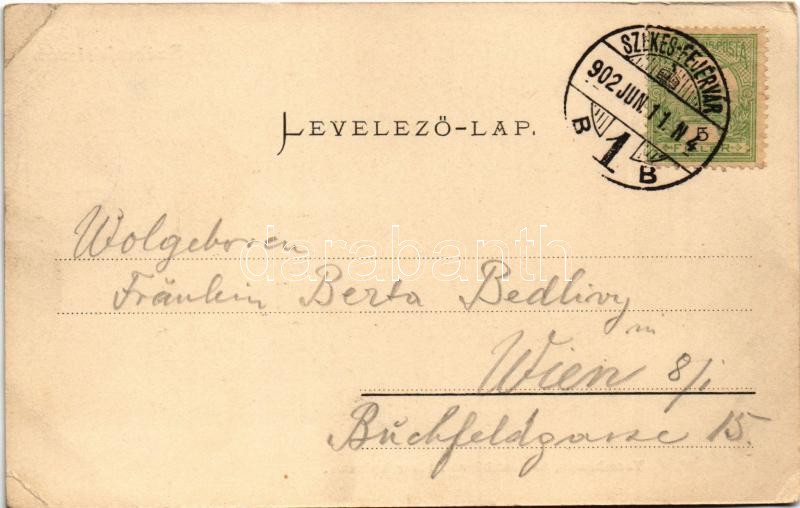 LEVELEZŐ-LAP.
SZÉKES-FEJÉRVÁR
902 JUN. 11. N 4
B 1 B
POSTA
5
FILLÉR
Wolgeboren
Fräulein Berta Bedlivy
in
Wien 8/1
Buchfeldgasse 15.
darabanth.com